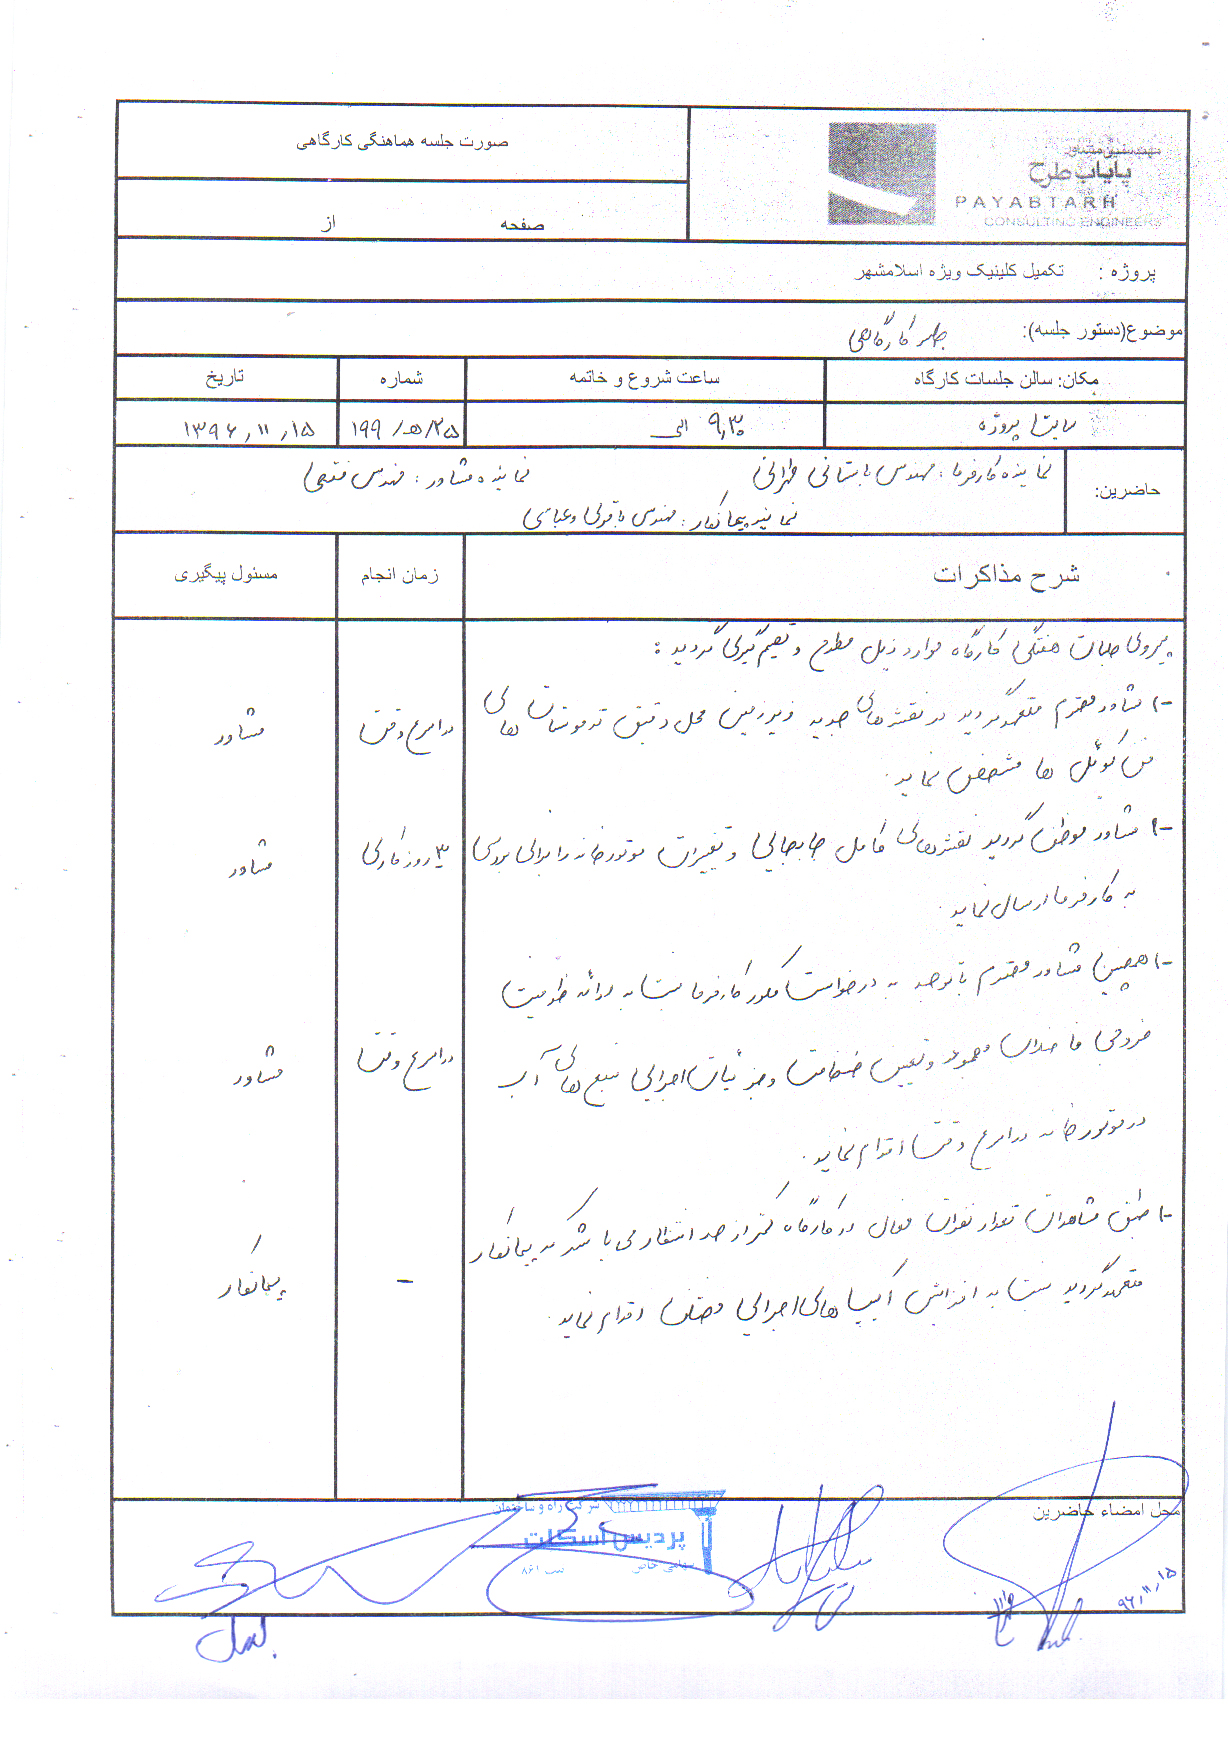 صورت جلسه هماهنگی کارگاهی
مهندسین مشاور
پایاب طرح
PAYABTARH
CONSULTING ENGINEERS
صفحه از
پروژه : تکمیل کلینیک ویژه اسلامشهر
موضوع(دستور جلسه): جلسه کارگاهی
مکان: سالن جلسات کارگاه ساعت شروع و خاتمه شماره تاریخ
سایت پروژه ۹٫۳۰ الی ۱۹۹/ه/۲۵ ۱۳۹۶٫۱۱٫۱۵
حاضرین:
نماینده کارفرما : مهندس باستانی طهرانی نماینده مشاور : مهندس فتحی
نماینده پیمانکار : مهندس باقری و عباسی
شرح مذاکرات زمان انجام مسئول پیگیری
پیروی جلسات هفتگی کارگاه موارد ذیل مطرح و تصمیم گیری گردید :
۱- مشاور محترم متعهد گردید در نقشه های جدید زیرزمین محل دقیق ترموستات های
در اسرع وقت مشاور
فن کوئل ها مشخص نماید.
۱- مشاور موظف گردید نقشه های کامل جابجایی و تغییرات موتورخانه را برای بررسی
۳ روز کاری مشاور
به کارفرما ارسال نماید.
۱- همچنین مشاور محترم با توجه به درخواست مکرر کارفرما نسبت به ارائه ظرفیت
خروجی فاضلاب مجموعه و تعیین ضخامت و جزئیات اجرایی منبع های آب
در اسرع وقت مشاور
در موتورخانه در اسرع وقت اقدام نماید.
۱- طبق مشاهدات تعداد نفرات فعال در کارگاه کمتر از حد انتظار می باشد که پیمانکار
متعهد گردید نسبت به افزایش اکیپ های اجرایی مختلف اقدام نماید.
– پیمانکار
محل امضاء حاضرین
شرکت راه و ساختمان
پردیس اسکلت
سهامی خاص ثبت ۸۶۱
۹۶٫۱۱٫۱۵